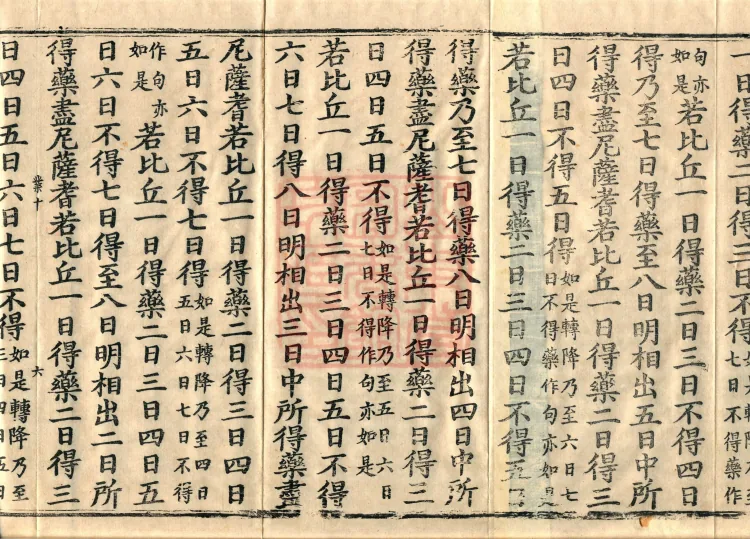 一日得藥二日得三日不得七日不得藥作
句亦如是若比丘一日得藥二日三日不得四日
得乃至七日得藥至八日明相出五日中所
得藥盡尼薩耆若比丘一日得藥二日得三
日四日不得五日得如是轉降乃至六日七日不得藥作句亦如是
若比丘一日得藥二日三日四日不得五日
得藥乃至七日得藥八日明相出四日中所
得藥盡尼薩耆若比丘一日得藥二日得三
日四日五日不得如是轉降乃至五日六日七日不得作句亦如是
若比丘一日得藥二日三日四日五日不得
六日七日得八日明相出三日中所得藥盡
尼薩耆若比丘一日得藥二日得三日四日
五日六日不得七日得如是轉降乃至四日五日六日七日不得
作句亦如是若比丘一日得藥二日三日四日五
日六日不得七日得至八日明相出二日所
得藥盡尼薩耆若比丘一日得藥二日得三
十 六
日四日五日六日七日不得如是轉降乃至三日四日五日